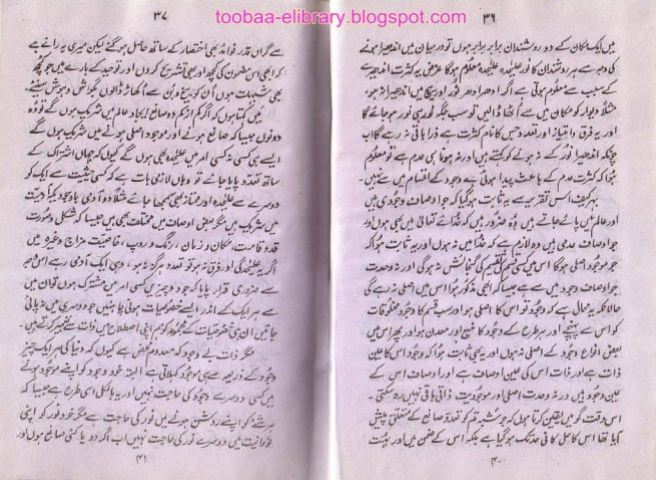 toobaa-elibrary.blogspot.com
۳۶
میں ایک مکان کے دو روشندان برابر برابر ہوں تو درمیان میں اندھیرا ہونے
کی وجہ سے ہر روشندان کا نور علیحدہ علیحدہ معلوم ہوگا غرض یہ کثرت اندھیرے
کے سبب سے معلوم ہوتی ہے اگر ادھر ادھر نور اور بیچ میں اندھیرا نہ ہو،
مثلاً دیوار کو مکان میں سے اُٹھا ڈالیں تو سب جگہ نور ہی نور ہو جائے گا
اور یہ فرق و امتیاز اور تعدد جس کا نام کثرت ہے ذرا باقی نہ رہے گا اب
چونکہ اندھیرا نور کے نہ ہونے کو کہتے ہیں اور نہ ہونا ہی عدم ہے تو معلوم
ہوا کہ کثرت عدم کے باعث پیدا ہوتی ہے وجود کے اقسام میں سے نہیں۔
بہر کیف اس تقریر سے یہ ثابت ہوگیا کہ جو اوصاف وجودی ہیں
اور عالم میں پائے جاتے ہیں وہ ضرور ہیں کہ خدائے تعالیٰ میں بھی ہوں اور
جو اوصاف عدمی ہیں وہ لازم ہے کہ خدا میں نہ ہوں اور یہ ثابت ہوا کہ
جو موجود اصلی ہوگا اس میں کسی قسم کی تقسیم کی گنجائش نہ ہوگی اور نہ وحدت
جو اوصاف وجود میں سے ہے جیسا کہ ابھی مذکور ہوا اس میں اصلی نہ رہے گی
حالانکہ یہ محال ہے کہ وجود تو اس کا اصلی ہو اور سب قسم کا وجود مخلوقات
کو اس سے پہنچے اور ہر طرح کے وجود کا منبع اور معدن ہو اور پھر اس میں
بعض انواع وجود کے اصلی نہ ہوں اور یہ بھی ثابت ہوا کہ وجود اس کا عین
ذات ہے اور ذات اس کی عین اوصاف ہے اور اوصاف اس کے
عین وجود ہیں ورنہ وحدت اصلی اور موجودیت ذاتی باقی نہیں رہ سکتی۔
اس وقت گو میں یقین کرتا ہوں کہ جو شبہ تم کو تعدد صانع کے متعلق پیش
آیا تھا اس کا حل کافی حد تک ہو گیا ہے بلکہ اس کے ضمن میں اور بہت
۴۰
۳۷
سے گراں قدر فوائد بھی اختصار کے ساتھ حاصل ہو گئے لیکن میری یہ رائے ہے
کہ ابھی اس مضمون کی کچھ اور بھی تشریح کروں اور توحید کے بارے میں جو کچھ
بھی شبہات ہوں اُن کو بیخ و بن سے اُکھاڑ ڈالوں بگوش و ہوش سنئے۔
میں کہتا ہوں کہ اگر کم از کم دو صانع ایجاد عالم میں شریک ہوں گے تو وہ
دونوں جیسا کہ صانع ہونے اور موجود اصلی ہونے میں شریک ہوں گے
ایسے ہی کسی نہ کسی امر میں علیحدہ بھی ہوں گے کیوں کہ جہاں اشتراک کے
ساتھ تعدد پایا جائے تو وہاں لازمی بات ہے کہ کسی حیثیت سے ایک کو
دوسرے سے علیحدہ اور ممتاز بھی سمجھا جائے مثلاً دو آدمی باوجودیکہ آدمیت
میں شریک ہیں مگر بعض اوصاف میں مختلف بھی ہیں جیسا کہ شکل و صورت
قد و قامت، مکان و زمان، رنگ و روپ، خاصیت مزاج وغیرہ میں
اگر یہ علیحدگی اور فرق نہ ہو تو تعدد ہرگز نہ ہو، وہی ایک آدمی رہے اس وجہ
سے ضروری قرار پایا کہ جو دو چیزیں کسی امر میں مشترک ہوں تو ان میں
سے ہر ایک کے اندر ایسے خصوصیات ہونی چاہئیں جو دوسری میں نہ پائی
جائیں ان ہی خصوصیات کے مجموعہ کو ہم اپنی اصطلاح میں ذات سے تعبیر کرتے ہیں۔
مگر ذات بے وجود کہ معدوم محض ہے کیوں کہ دنیا کی ہر ایک چیز
وجود کے ذریعہ سے ہی موجود کہلاتی ہے البتہ خود وجود کو اپنے موجود ہونے
میں کسی دوسرے وجود کی حاجت نہیں اور یہ بالکل اسی طرح ہے جیسا کہ
ہر شے کو اپنے روشن ہونے میں نور کی حاجت ہے مگر خود نور کو اپنی
نورانیت میں دوسرے نور کی حاجت نہیں اب اگر دو یا کئی صانع ہوں اور
۴۱